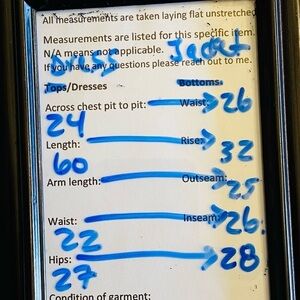 All measurements are taken laying flat unstretched
Measurements are listed for this specific item.
N/A means not applicable.
If you have any questions please reach out to me.
Dress Jacket
Tops/Dresses Bottoms:
Across chest pit to pit: Waist: 26
24
Length: Rise: 32
60
Arm length: Outseam: 25
Waist: Inseam: 26
22
Hips: 28
27
Condition of garment: